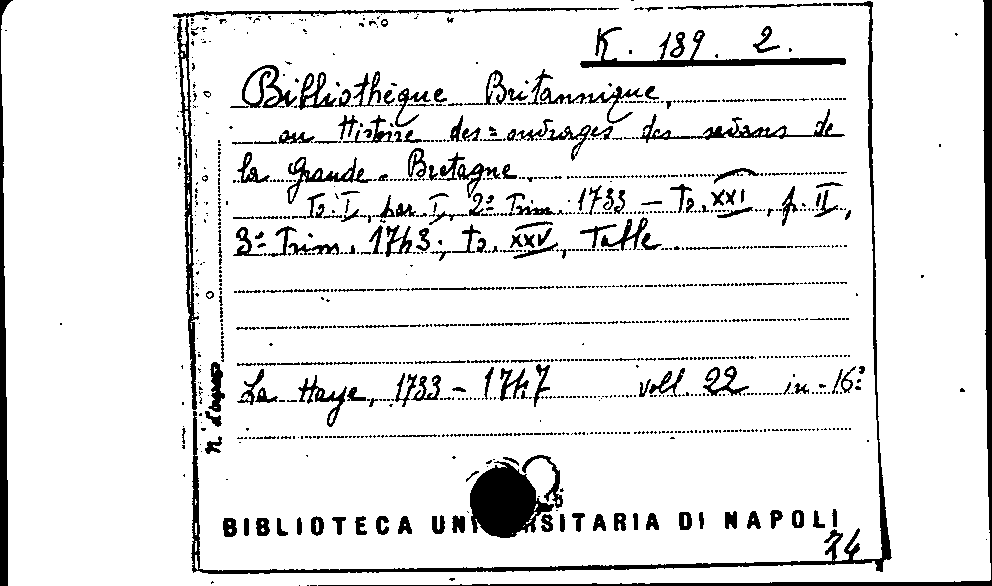 K. 189. 2.
Bibliothèque Britannique,
ou Histoire des = ouvrages des savans de
la Grande - Bretagne.
To. I, par. I, 2º Trim. 1733 – To. XXI, p. II,
3º Trim. 1743; To. XXV, Table.
La Haye, 1733 – 1747 voll. 22 in - 16º
N. d'ingresso
BIBLIOTECA UNIVERSITARIA DI NAPOLI
74